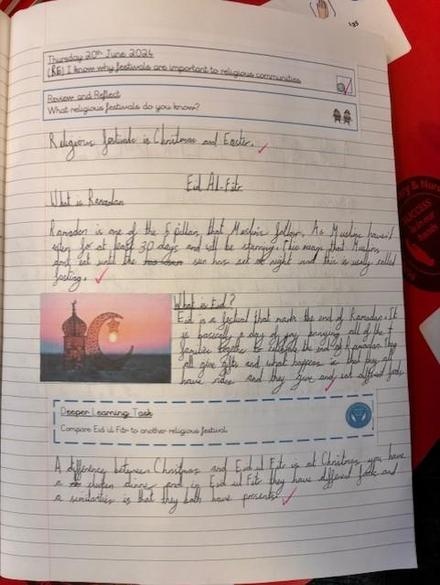 Thursday 20th June 2024
(RE) I know why festivals are important to religious communities
Review and Reflect
What religious festivals do you know?
Religious festivals is Christmas and Easter.
Eid Al-Fitr
What is Ramadan
Ramadan is one of the 5 pillars that Muslims follow. As Muslims haven't
eaten for at least 30 days and will be starving. This mean that Muslims
cant eat until the sun has set at night and this is usually called
fasting.
What is Eid?
Eid is a festival that marks the end of Ramadan. It
is basically a day of joy bringing all of the
families together to celebrate the end of Ramadan. They
all give gifts and what happens is that they all
have and they give and eat different foods.
Deeper Learning Task
Compare Eid ul Fitr to another religious festival
A difference between Christmas and Eid ul Fitr is at Christmas you have
a dinner and in Eid ul Fitr they have different foods and
a similarities is that they both have presents.
SUCCESS